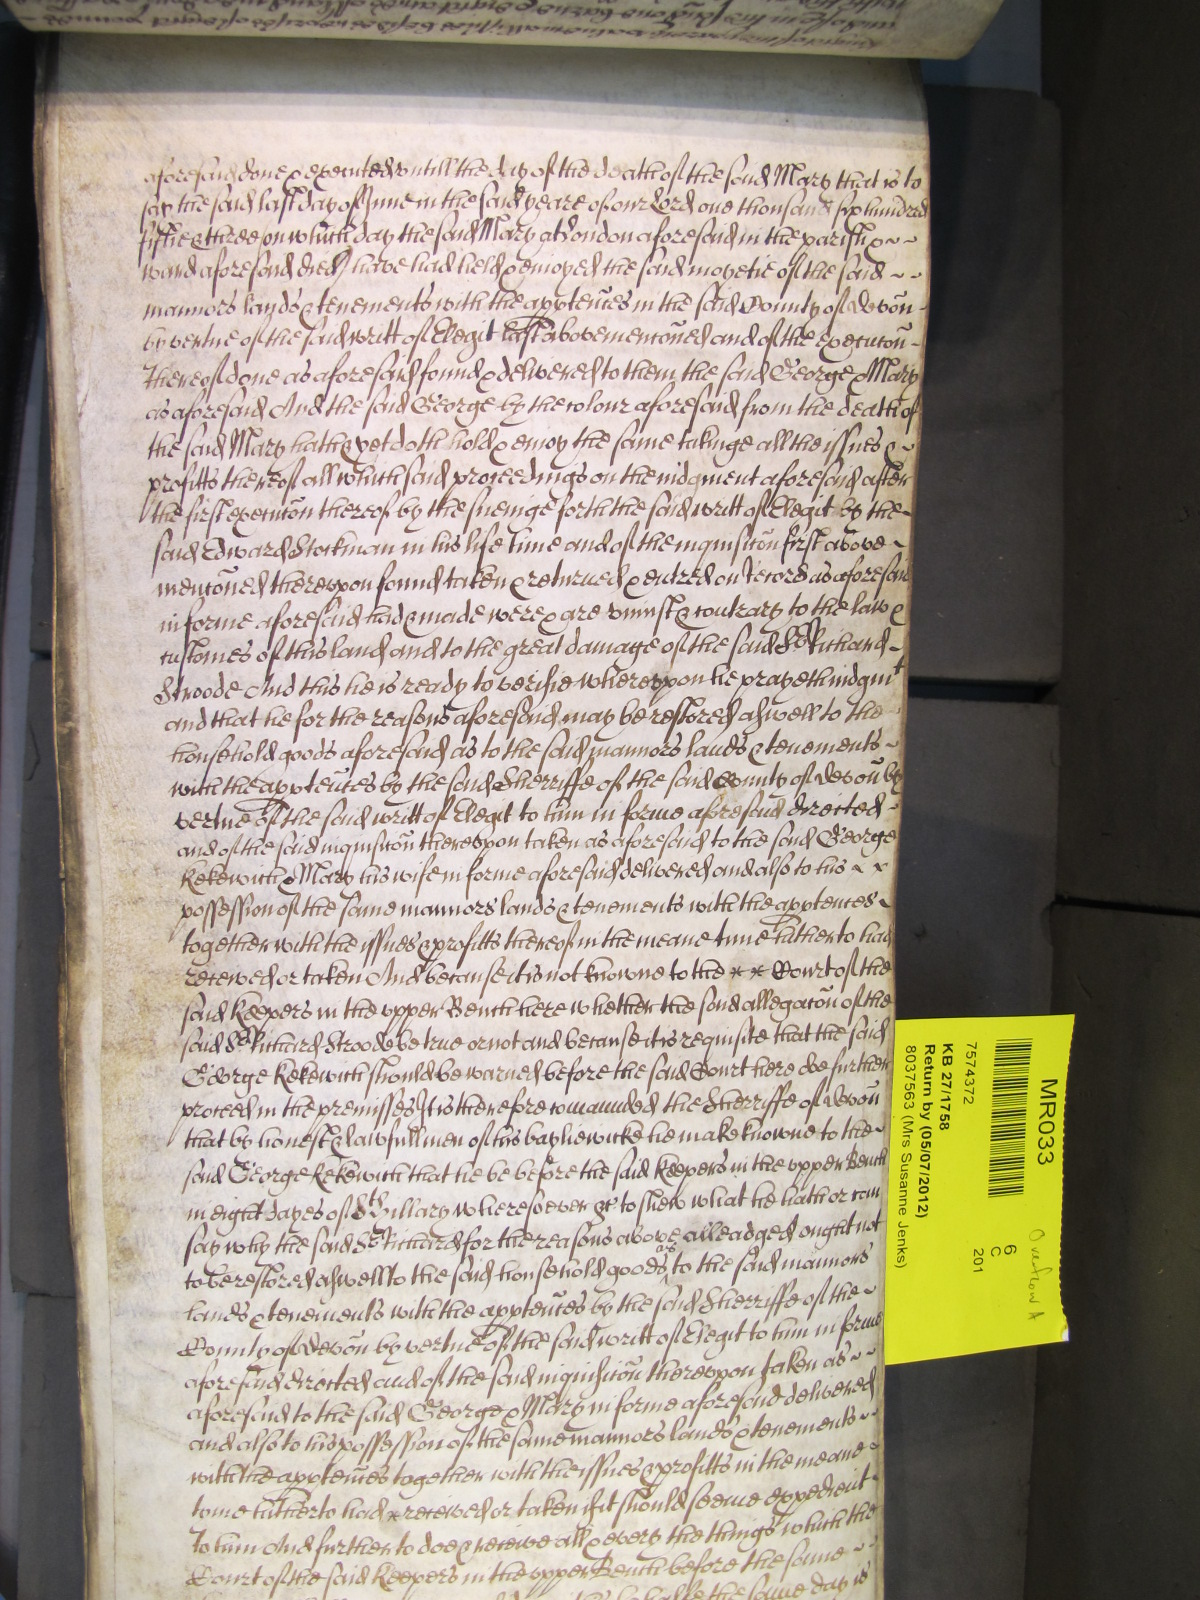 aforesaid done & executed untill the day of the death of the said Mary that is to
say the said last day of June in the said yeare of our Lord one thousand six hundred
fiftie & three on which day the said Mary at London aforesaid in the parish &
ward aforesaid died have had held & enioyed the said moyetie of the said
mannors lands & tenements with the apptēnces in the said County of Devōn
by vertue of the said writt of Elegit last abovemencōned and of the execucōn
thereof done as aforesaid found & delivered to them the said George & Mary
as aforesaid And the said George by the colour aforesaid from the death of
the said Mary hath & yet doth hold & enioy the same takinge all the issues &
profitts thereof all which said proceedings on the iudgment aforesaid after
the first execucōn thereof by the sueinge forth the said writt of Elegit by the
said Edward Starkman in his life time and of the inquisicōn first above
mencōned thereupon found taken & returned & entred on record as aforesaid
in forme aforesaid had & made were & are uniust & contrary to the law &
customes of this land and to the great damage of the said Sr Richard
Stroode And this he is ready to verifie whereupon he prayeth iudgmt
and that he for the reasons aforesaid may be restored aswell to the
household goods aforesaid as to the said mannors lands & tenements
with the apptēnces by the said Sherriffe of the said County of Devōn by
vertue of the said writt of Elegit to him in forme aforesaid directed
and of the said inquisicōn thereupon taken as aforesaid to the said George
Kekewich & Mary his wife in forme aforesaid delivered and also to his
possession of the same mannors lands & tenements with the apptences
together with the issues & profitts thereof in the meane time hitherto had
received or taken And because it is not knowne to the ** Court of the
said Keepers in the upper Bench here whether the said allegacōn of the
said Sr Richard Stroode be true or not and because it is requisite that the said
George Kekewich should be warned before the said Court here doe further
proceed in the premisses It is therefore comaunded the Sherriffe of Devōn
that by honest & lawfull men of his bayliewicke he make knowne to the
said George Kekewich that he be before the said Keepers in the upper Bench
in eight dayes of St Hillary wheresoever &c to shew what he hath or can
say why the said Sr Richard for the reasons above alleadged ought not
to be restored aswell to the said household goods as to the said mannors
lands & tenements with the apptēnces by the said Sherriffe of the
County of Devōn by vertue of the said writt of Elegit to him in forme
aforesaid directed and of the said inquisicōn thereupon taken as
aforesaid to the said George & Mary in forme aforesaid delivered
and also to his possession of the same mannors lands & tenements
with the apptēnces together with the issues & profitts in the meane
time hitherto had & received or taken if it should seeme expedient
to him And further to doe & receive all & every the things which the
Court of the said Keepers in the upper Bench before the same
the same day is
MR033
Overflow A
6
C
201
7574372
KB 27/1758
Return by (05/07/2012)
8037563 (Mrs Susanne Jenks)